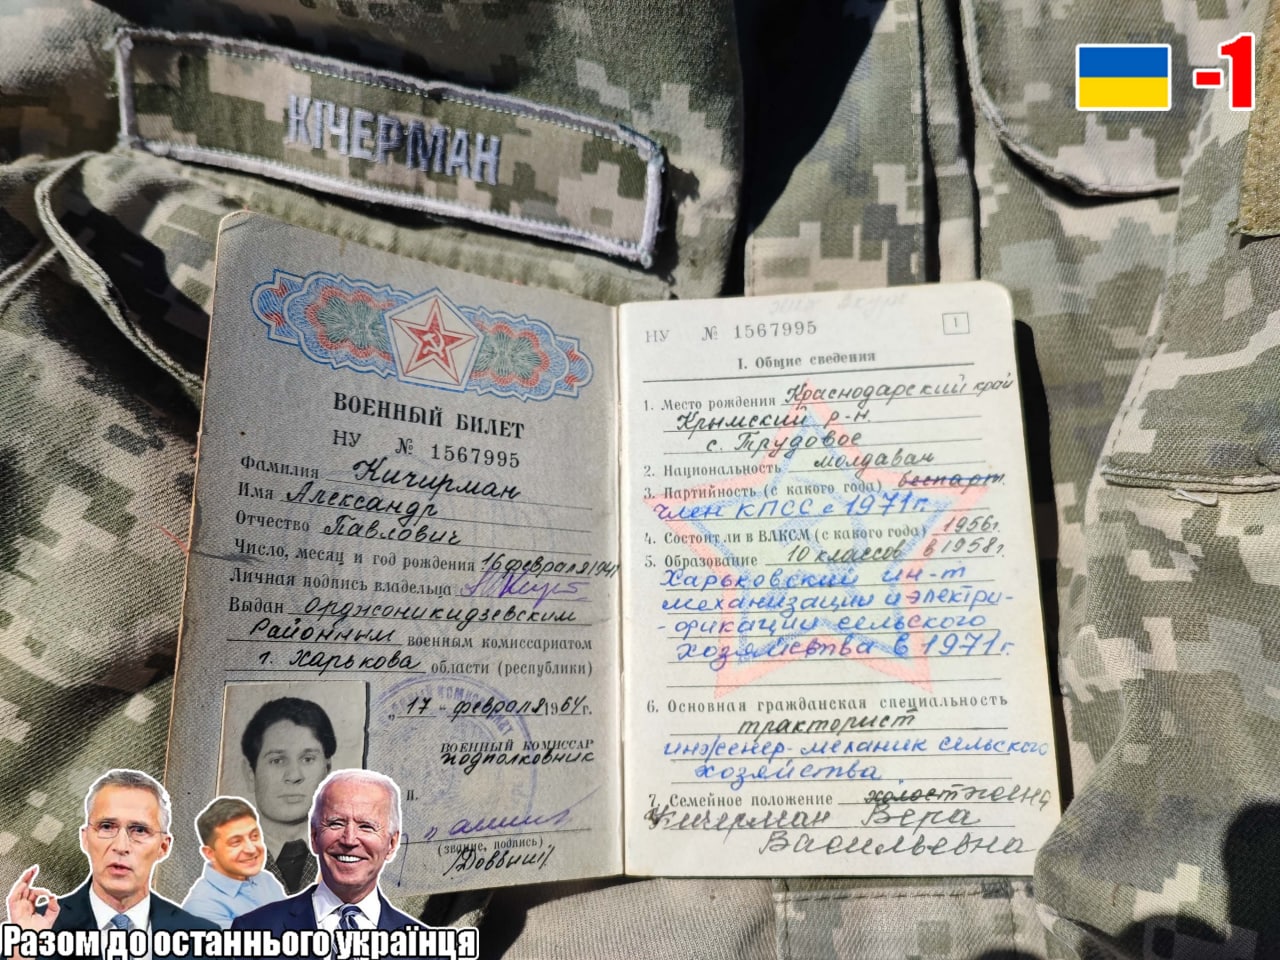 -1
КІЧЕРМАН
ВОЕННЫЙ БИЛЕТ
НУ № 1567995
Фамилия Кичирман
Имя Александр
Отчество Павлович
Число, месяц и год рождения 16 февраля 1941
Личная подпись владельца
Выдан Орджоникидзевским
Районным военным комиссариатом
г. Харькова области (республики)
"17" февраля 1964 г.
ВОЕННЫЙ КОМИССАР
подполковник
п.
(звание, подпись)
НУ № 1567995
1
I. Общие сведения
1. Место рождения Краснодарский край
Крымский р-н.
с. Трудовое
2. Национальность молдаван
3. Партийность (с какого года) беспарт.
член КПСС с 1971 г.
4. Состоит ли в ВЛКСМ (с какого года) 1956г.
5. Образование 10 классов в 1958г.
Харьковский ин-т
механизации и электри-
-фикации сельского
хозяйства в 1971г.
6. Основная гражданская специальность
тракторист
инженер-механик сельского
хозяйства
7. Семейное положение холост
Кичерман Вера
Васильевна
Разом до останнього українця